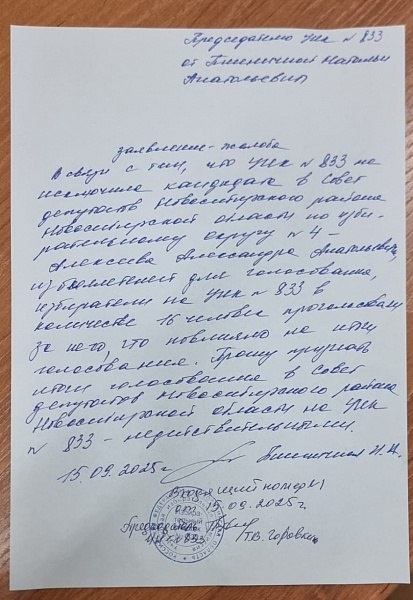 Председателю УИК № 833
от Пшеничной Натальи
Анатольевны
заявление-жалоба
В связи с тем, что УИК № 833 не
исключила кандидата в Совет
депутатов Новосибирского района
Новосибирской области по изби-
рательному округу № 4 –
Алексеева Александра Анатольевича,
из бюллетеней для голосования,
избиратели на УИК № 833 в
количестве 16 человек проголосовали
за него, что повлияло на итоги
голосования. Прошу признать
итоги голосования в Совет
депутатов Новосибирского района
Новосибирской области на УИК
№ 833 – недействительными.
15.09.2025г Пшеничная Н.А.
Входящий номер №1
от 15.09.2025г.
Председатель
УИК № 833 Т.В.